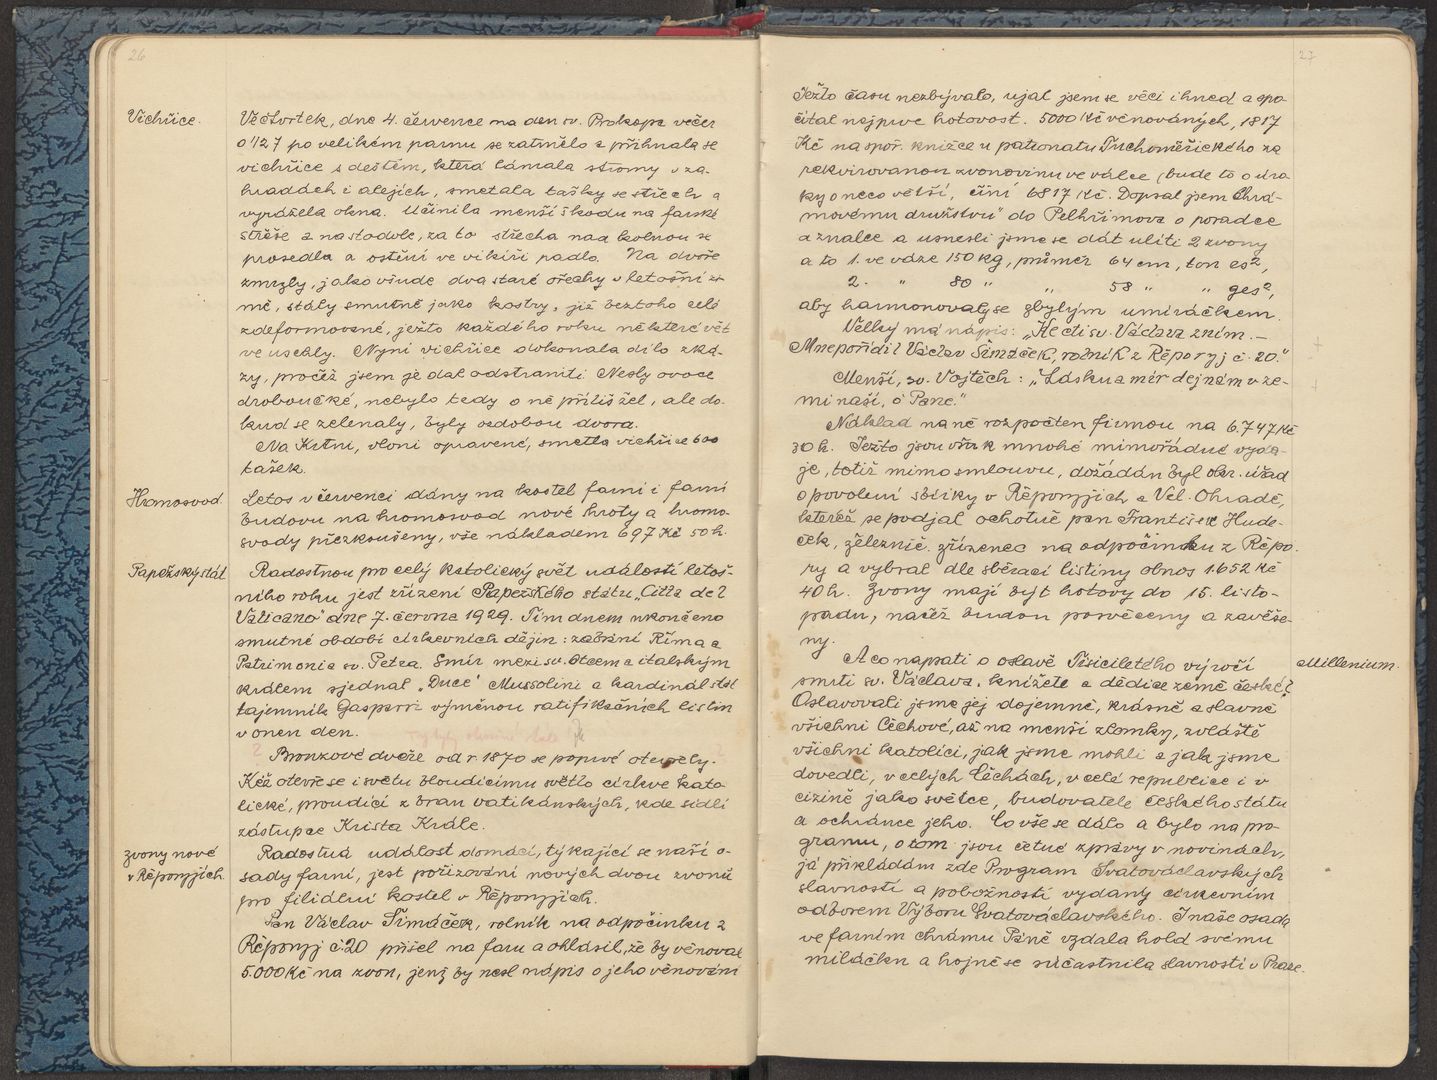 26
Vichřice.
Ve čtvrtek, dne 4. července na den sv. Prokopa večer
o ½7 po velikém parnu se zatmělo a přihnala se
vichřice s deštěm, která lámala stromy v za-
hradách i alejích, smetala tašky se střech a
vyrážela okna. Učinila menší škodu na farské
střeše a na stodole, za to střecha nad kolnou se
prosedla a ostění ve vikýři padlo. Na dvoře
zmrzly, jako všude dva staré ořechy v letošní zi
mě, stály smutně jako kostry, již bez toho celé
zdeformované, ježto každého roku některé vět
ve uschly. Nyní vichřice dokonala dílo zká-
zy, pročež jsem je dal odstraniti. Nesly ovoce
droboučké, nebylo tedy o ně příliš žel, ale do-
kud se zelenaly, byly ozdobou dvora.
Na Krtni, vloni opravené, smetla vichřice 600
tašek.
Hromosvod.
Letos v červenci dány na kostel farní i farní
budovu na hromosvod nové hroty a hromo-
svody přezkoušeny, vše nákladem 697 Kč 50 h.
Papežský stát
Radostnou pro celý katolický svět událostí letoš-
ního roku jest zřízení Papežského státu „Citta del
Vaticano" dne 7. června 1929. Tím dnem ukončeno
smutné období církevních dějin: zabrání Říma a
Patrimonia sv. Petra. Smír mezi sv. Otcem a italským
králem sjednal „Duce" Mussolini a kardinál stát
tajemník Gasparri výměnou ratifikačních listin
v onen den.
2 2
Bronzové dveře od r. 1870 se poprvé otevřely.
Kéž otevře se i světu bloudícímu světlo církve kato
lické, proudící z bran vatikánských, kde sídlí
zástupce Krista Krále.
Zvony nové
v Řeporyjích.
Radostná událost domácí, týkající se naší o-
sady farní, jest pořizování nových dvou zvonů
pro filiální kostel v Řeporyjích.
Pan Václav Šimáček, rolník na odpočinku z
Řeporyj č. 20 přišel na faru a ohlásil, že by věnoval
5.000 Kč na zvon, jenž by nesl nápis o jeho věnování
27
Ježto času nezbývalo, ujal jsem se věci ihned a spo-
čítal nejprve hotovost. 5000 Kč věnovaných, 1817
Kč na spoř. knížce u patronátu Tuchoměřického za
rekvirovanou zvonovinu ve válce (bude to o úro
ky o neco větší, činí 6817 Kč. Dopsal jsem „Chrá-
movému družstvu" do Pelhřimova o poradce
a znalce a usnesli jsme se dát ulíti 2 zvony
a to 1. ve váze 150 kg, průměr 64 cm, ton es²,
2. " 80 " " 53 " " ges²,
aby harmonovaly se zbylým umíráčkem.
Velký má nápis: „Ke cti sv. Václava zním. –
Mne pořídil Václav Šimáček, rolník z Řeporyj č. 20."
Menší, sv. Vojtěch: „Lásku a mír dej nám v ze-
mi naší, ó Pane."
Náklad na ně rozpočten firmou na 6.747 Kč
30 h. Ježto jsou však mnohé mimořádné vyda-
je, totiž mimo smlouvu, dožádán byl okr. úřad
o povolení sbírky v Řeporyjích a Vel. Ohradě,
kteréž se podjal ochotně pan František Hude-
ček, železnič. zřízenec na odpočinku z Řepo-
ry a vybral dle sběrací listiny obnos 1.652 Kč
40 h. Zvony mají býti hotovy do 15. listo-
padu, načež budou posvěceny a zavěše-
ny.
Millenium.
A co napsati o oslavě Tisíciletého výročí
smrti sv. Václava, knížete a dědice země české?
Oslavovali jsme jej dojemně, krásně a slavně
všichni Čechové, až na menší zlomky, zvláště
všichni katolíci, jak jsme mohli a jak jsme
dovedli, v celých Čechách, v celé republice i v
cizině jako světce, budovatele českého státu
a ochránce jeho. Co vše se dálo a bylo na pro-
gramu, o tom jsou četné zprávy v novinách,
já přikládám zde Program Svatováclavských
slavností a pobožností vydaný církevním
odborem Výboru Svatováclavského. I naše osada
ve farním chrámu Páně vzdala hold svému
miláčku a hojně se súčastnila slavností v Praze.